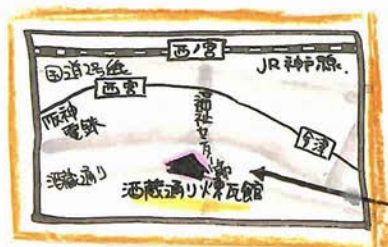 西ノ宮
国道2号線
JR神戸線.
西宮
阪神
電鉄
今津
酒蔵通り
酒蔵通り煉瓦館